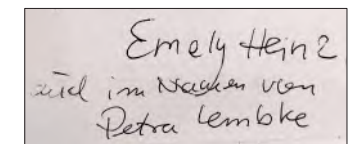 Emely Heinz
und im Namen von
Petra Lembke